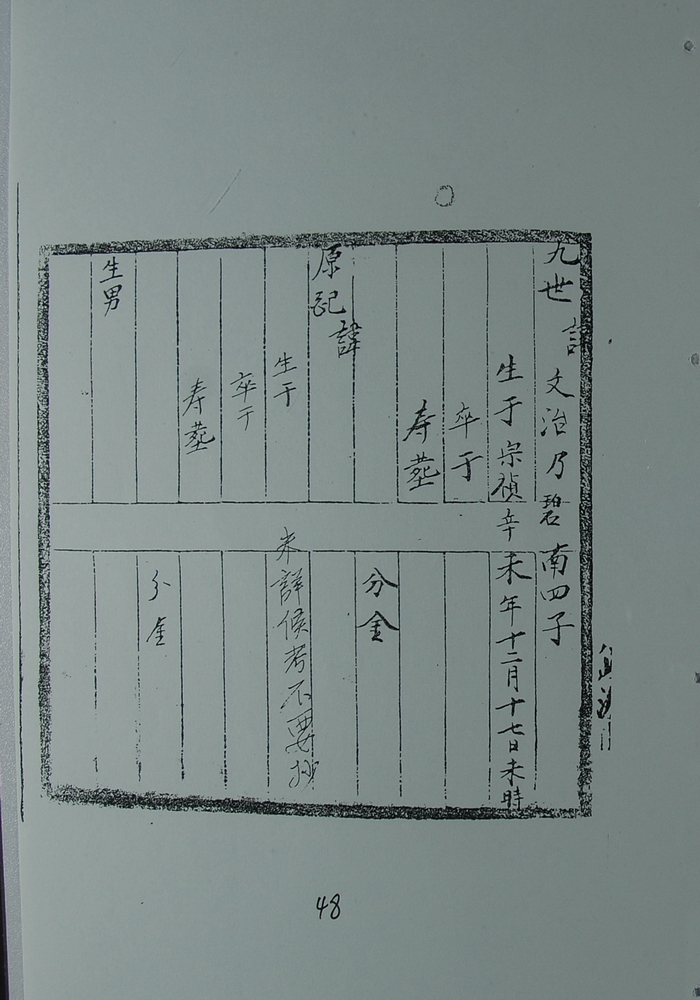 九世 諱 文治乃碧南四子
生于宗禎辛未年十二月十七日未時
卒于
寿塟
分金
原配
諱
生于
未詳候考不要抄
卒于
寿塟
分金
生男
48